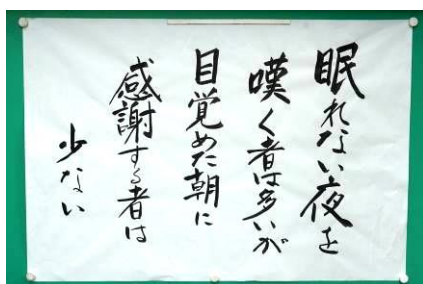 眠れない夜を
嘆く者は多いが
目覚めた朝に
感謝する者は
少ない